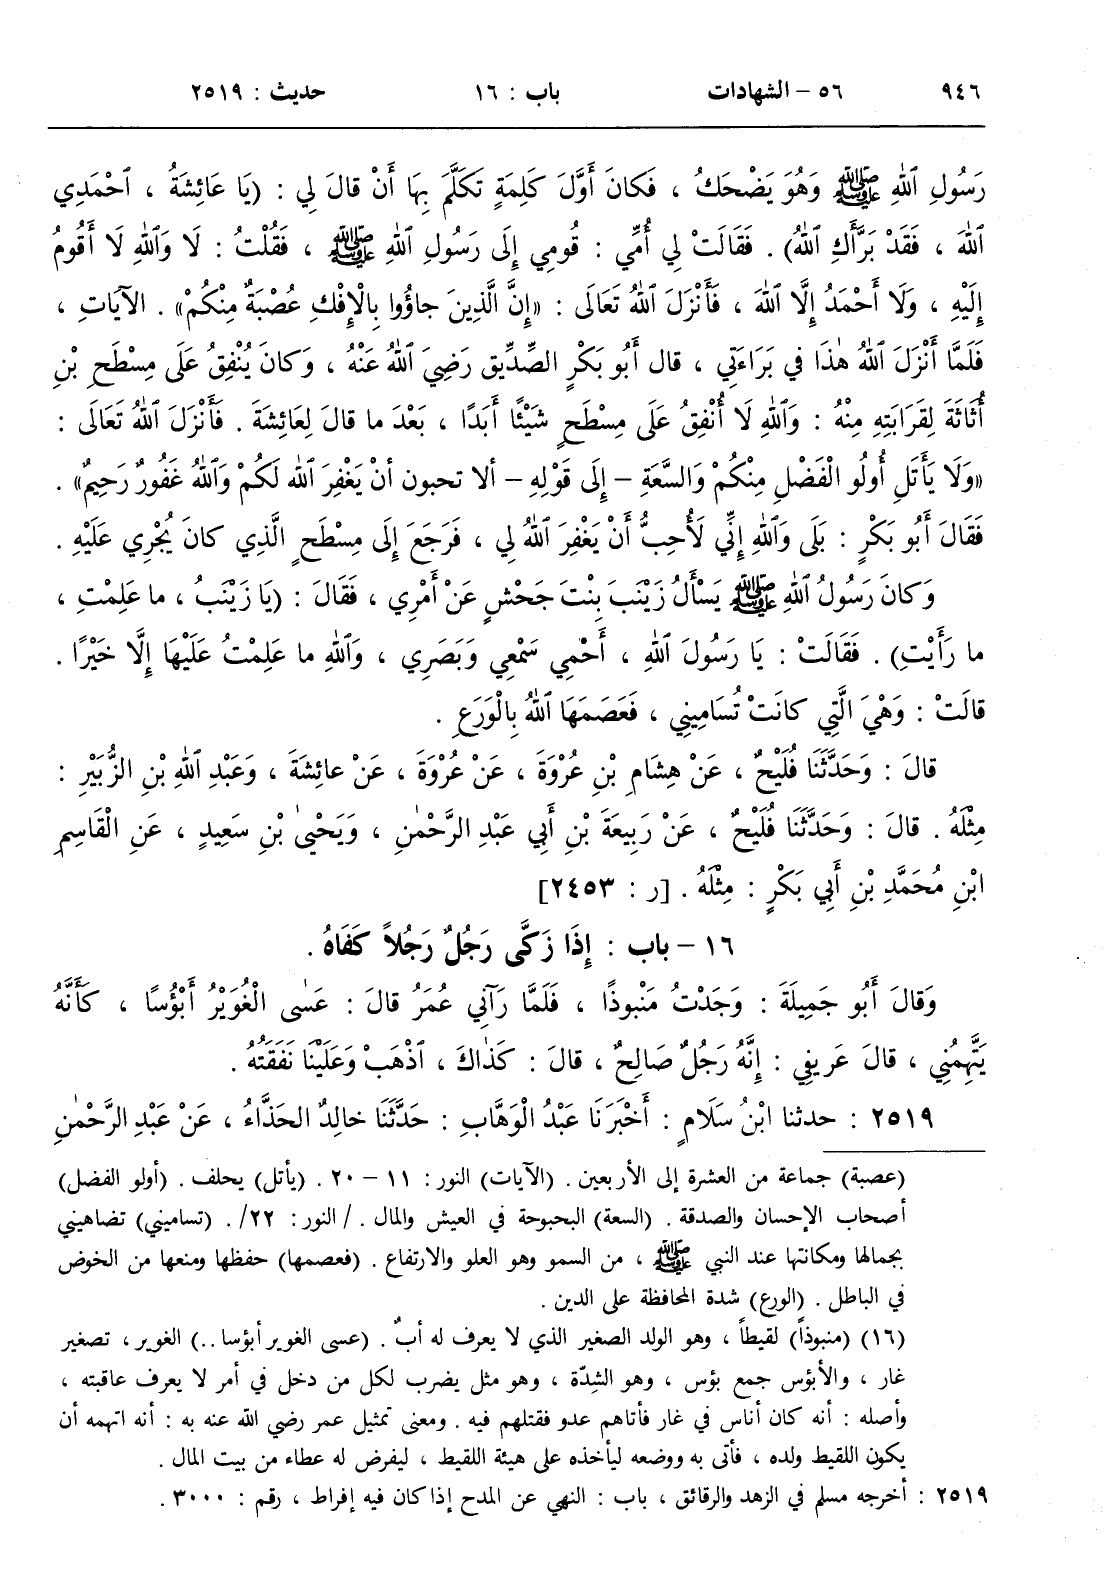 ٩٤٦ ٥٦ – الشهادات باب : ١٦ حديث : ٢٥١٩
رَسُولِ ٱللهِ ﷺ وَهُوَ يَضْحَكُ ، فَكانَ أَوَّلَ كَلِمَةٍ تَكَلَّمَ بِهَا أَنْ قالَ لِي : (يَا عَائِشَةُ ، ٱحْمَدِي
ٱللهَ ، فَقَدْ بَرَّأَكِ ٱللهُ) . فَقَالَتْ لِي أُمِّي : قُومِي إِلَى رَسُولِ ٱللهِ ﷺ ، فَقُلْتُ : لَا وَٱللهِ لَا أَقُومُ
إِلَيْهِ ، وَلَا أَحْمَدُ إِلَّا ٱللهَ ، فَأَنْزَلَ ٱللهُ تَعَالَى : «إِنَّ الَّذِينَ جاؤُوا بِالْإِفْكِ عُصْبَةٌ مِنْكُمْ» . الآيَاتِ ،
فَلَمَّا أَنْزَلَ ٱللهُ هٰذَا في بَرَاءَتِي ، قال أَبُو بَكْرٍ الصِّدِّيق رَضِيَ ٱللهُ عَنْهُ ، وَكانَ يُنْفِقُ عَلَى مِسْطَحِ بْنِ
أُثَاثَةَ لِقَرَابَتِهِ مِنْهُ : وَٱللهِ لَا أُنْفِقُ عَلَى مِسْطَحٍ شَيْئًا أَبَدًا ، بَعْدَ ما قالَ لِعَائِشَةَ . فَأَنْزَلَ ٱللهُ تَعَالَى :
«وَلَا يَأْتَلِ أُولُو الْفَضْلِ مِنْكُمْ وَالسَّعَةِ – إِلَى قَوْلِهِ – ألا تحبون أنْ يَغْفِرَ ٱلله لَكُمْ وَٱللهُ غَفُورٌ رَحِيمٌ» .
فَقَالَ أَبُو بَكْرٍ : بَلَى وَٱللهِ إِنِّي لَأُحِبُّ أَنْ يَغْفِرَ ٱللهُ لِي ، فَرَجَعَ إِلَى مِسْطَحٍ الَّذِي كانَ يُجْرِي عَلَيْهِ .
وَكانَ رَسُولُ ٱللهِ ﷺ يَسْأَلُ زَيْنَبَ بِنْتَ جَحْشٍ عَنْ أَمْرِي ، فَقَالَ : (يَا زَيْنَبُ ، ما عَلِمْتِ ،
ما رَأَيْتِ) . فَقَالَتْ : يَا رَسُولَ ٱللهِ ، أَحْمِي سَمْعِي وَبَصَرِي ، وَٱللهِ ما عَلِمْتُ عَلَيْهَا إِلَّا خَيْرًا .
قالَتْ : وَهْيَ الَّتِي كانَتْ تُسَامِينِي ، فَعَصَمَهَا ٱللهُ بِالْوَرَعِ .
قالَ : وَحَدَّثَنَا فُلَيْحٌ ، عَنْ هِشَامِ بْنِ عُرْوَةَ ، عَنْ عُرْوَةَ ، عَنْ عائِشَةَ ، وَعَبْدِ ٱللهِ بْنِ الزُّبَيْرِ :
مِثْلَهُ . قالَ : وَحَدَّثَنَا فُلَيْحٌ ، عَنْ رَبِيعَةَ بْنِ أَبِي عَبْدِ الرَّحْمٰنِ ، وَيَحْيىٰ بْنِ سَعِيدٍ ، عَنِ الْقَاسِمِ
ابْنِ مُحَمَّدِ بْنِ أَبِي بَكْرٍ : مِثْلَهُ . [ر : ٢٤٥٣]
١٦ – باب : إِذَا زَكَّى رَجُلٌ رَجُلاً كَفَاهُ .
وَقالَ أَبُو جَمِيلَةَ : وَجَدْتُ مَنْبُوذًا ، فَلَمَّا رَآنِي عُمَرُ قالَ : عَسٰى الْغُوَيْرُ أَبْؤُسًا ، كَأَنَّهُ
يَتَّهِمُنِي ، قالَ عَرِيفِي : إِنَّهُ رَجُلٌ صَالِحٌ ، قالَ : كَذٰاكَ ، ٱذْهَبْ وَعَلَيْنَا نَفَقَتُهُ .
٢٥١٩ : حدثنا ابْنُ سَلَامٍ : أَخْبَرَنَا عَبْدُ الْوَهَّابِ : حَدَّثَنَا خالِدٌ الحَذَّاءُ ، عَنْ عَبْدِ الرَّحْمٰنِ
(عصبة) جماعة من العشرة إلى الأربعين . (الآيات) النور: ١١ – ٢٠ . (يأتل) يحلف . (أولو الفضل)
أصحاب الإحسان والصدقة . (السعة) البحبوحة في العيش والمال . / النور: ٢٢/ . (تساميني) تضاهيني
بجمالها ومكانتها عند النبي ﷺ ، من السمو وهو العلو والارتفاع . (فعصمها) حفظها ومنعها من الخوض
في الباطل . (الورع) شدة المحافظة على الدين .
(١٦) (منبوذاً) لقيطاً ، وهو الولد الصغير الذي لا يعرف له أبٌ . (عسى الغوير أبؤسا ..) الغوير ، تصغير
غار ، والأبؤس جمع بؤس ، وهو الشِدّة ، وهو مثل يضرب لكل من دخل في أمر لا يعرف عاقبته ،
وأصله : أنه كان أناس في غار فأتاهم عدو فقتلهم فيه . ومعنى تمثيل عمر رضي الله عنه به : أنه اتهمه أن
يكون اللقيط ولده ، فأتى به ووضعه ليأخذه على هيئة اللقيط ، ليفرض له عطاء من بيت المال .
٢٥١٩ : أخرجه مسلم في الزهد والرقائق ، باب : النهي عن المدح إذا كان فيه إفراط ، رقم : ٣٠٠٠ .